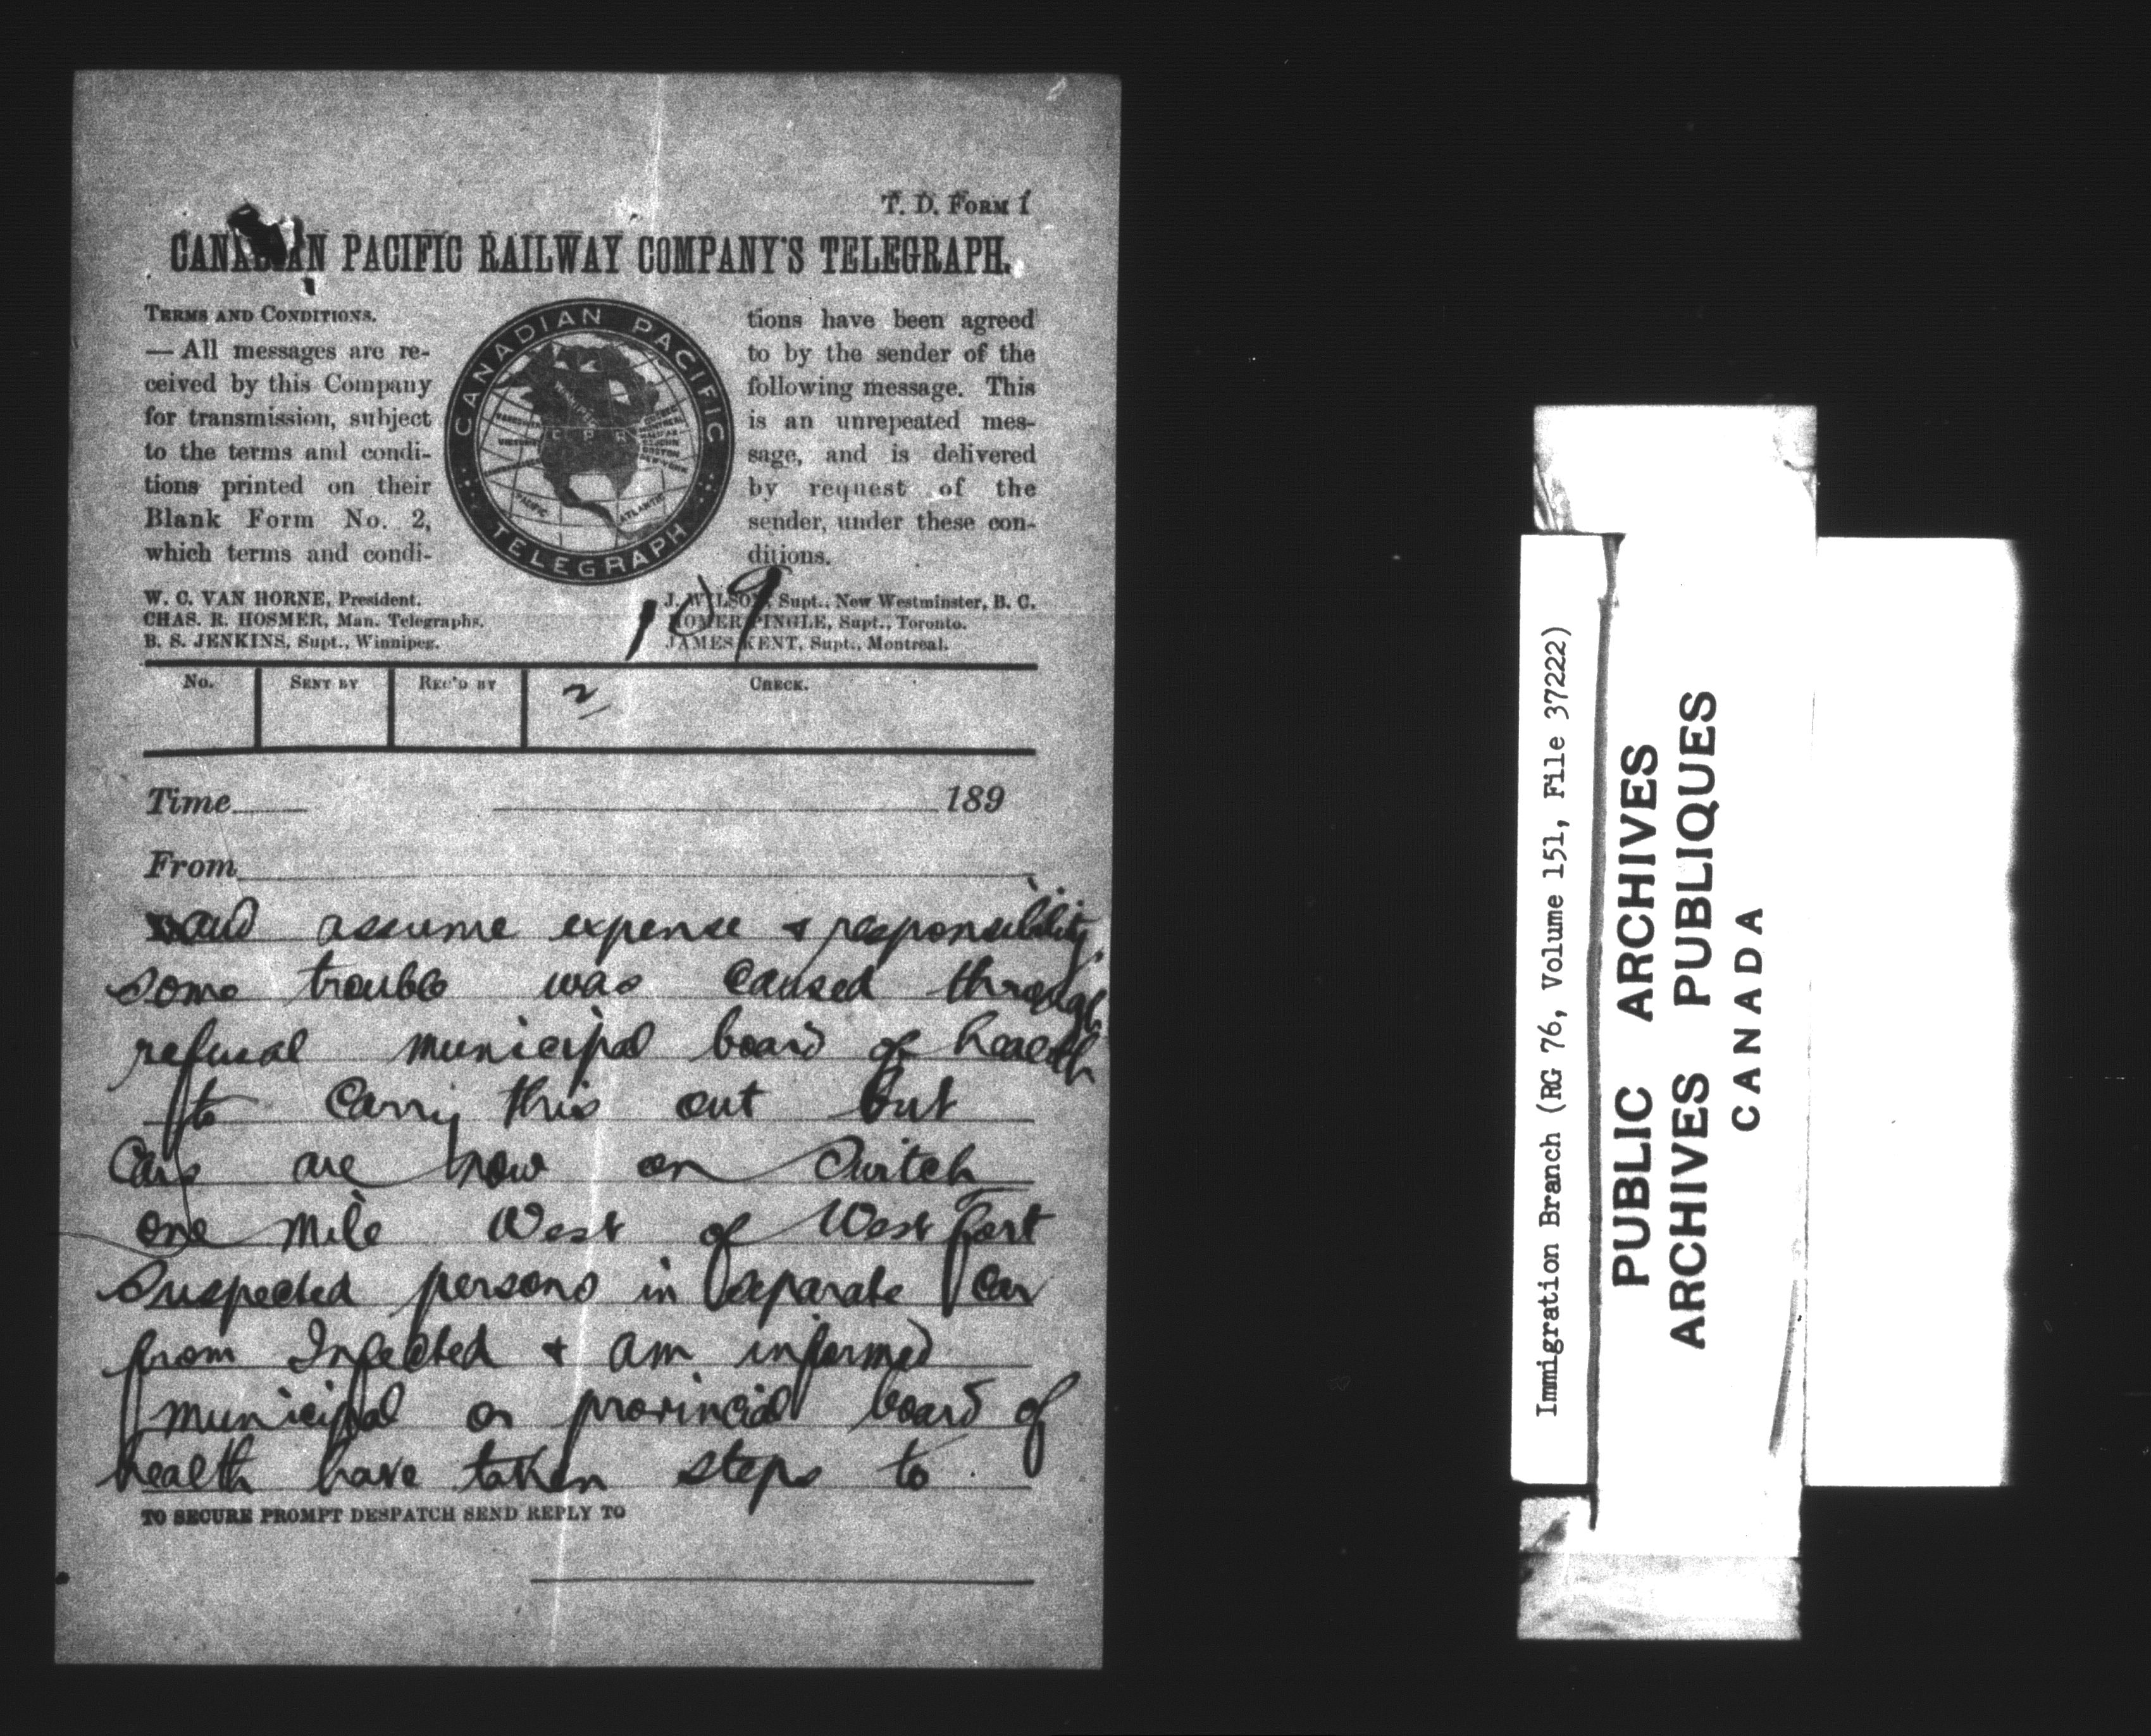 T. D. FORM 1
CANADIAN PACIFIC RAILWAY COMPANY'S TELEGRAPH.
TERMS AND CONDITIONS.
— All messages are re-
ceived by this Company
for transmission, subject
to the terms and condi-
tions printed on their
Blank Form No. 2,
which terms and condi-
CANADIAN PACIFIC
TELEGRAPH
C P R
PACIFIC
ATLANTIC
tions have been agreed
to by the sender of the
following message. This
is an unrepeated mes-
sage, and is delivered
by request of the
sender, under these con-
ditions.
109
W. C. VAN HORNE, President.
CHAS. R. HOSMER, Man. Telegraphs.
B. S. JENKINS, Supt., Winnipeg.
J. WILSON, Supt., New Westminster, B. C.
HOMER PINGLE, Supt., Toronto.
JAMES KENT, Supt., Montreal.
No. SENT BY REC'D BY 2 CHECK.
Time 189
From
assume expense & responsibility
some trouble was caused through
refusal municipal board of health
to carry this out but
Cars are now on Switch
one mile West of West Fort
Suspected persons in separate car
from Infected & am informed
municipal or provincial board of
health have taken steps to
TO SECURE PROMPT DESPATCH SEND REPLY TO
Immigration Branch (RG 76, Volume 151, File 37222)
PUBLIC ARCHIVES
ARCHIVES PUBLIQUES
CANADA